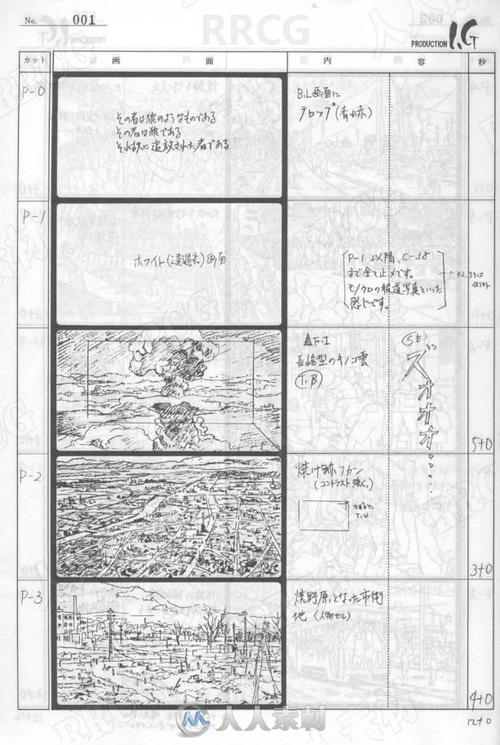 No. 001
RRCG
PRODUCTION I.G
カット 画面 内容 秒
P-0
その者は狼のようなものである
その者は狼である
それ故に追放された者である
B.L画面に
テロップ(青か赤)
P-1
ホワイト(透過光)画面
P-1以降、C-38
まで全て止メです。
モノクロの報道写真といった
感じです。
T-I
長崎型のキノコ雲
T.B
SE
ズオオオ
5+0
P-2
焼け跡フカン
(コントラスト強く)
T.U
3+0
P-3
焼野原となった市街
地
4+0
12+0
人人素材